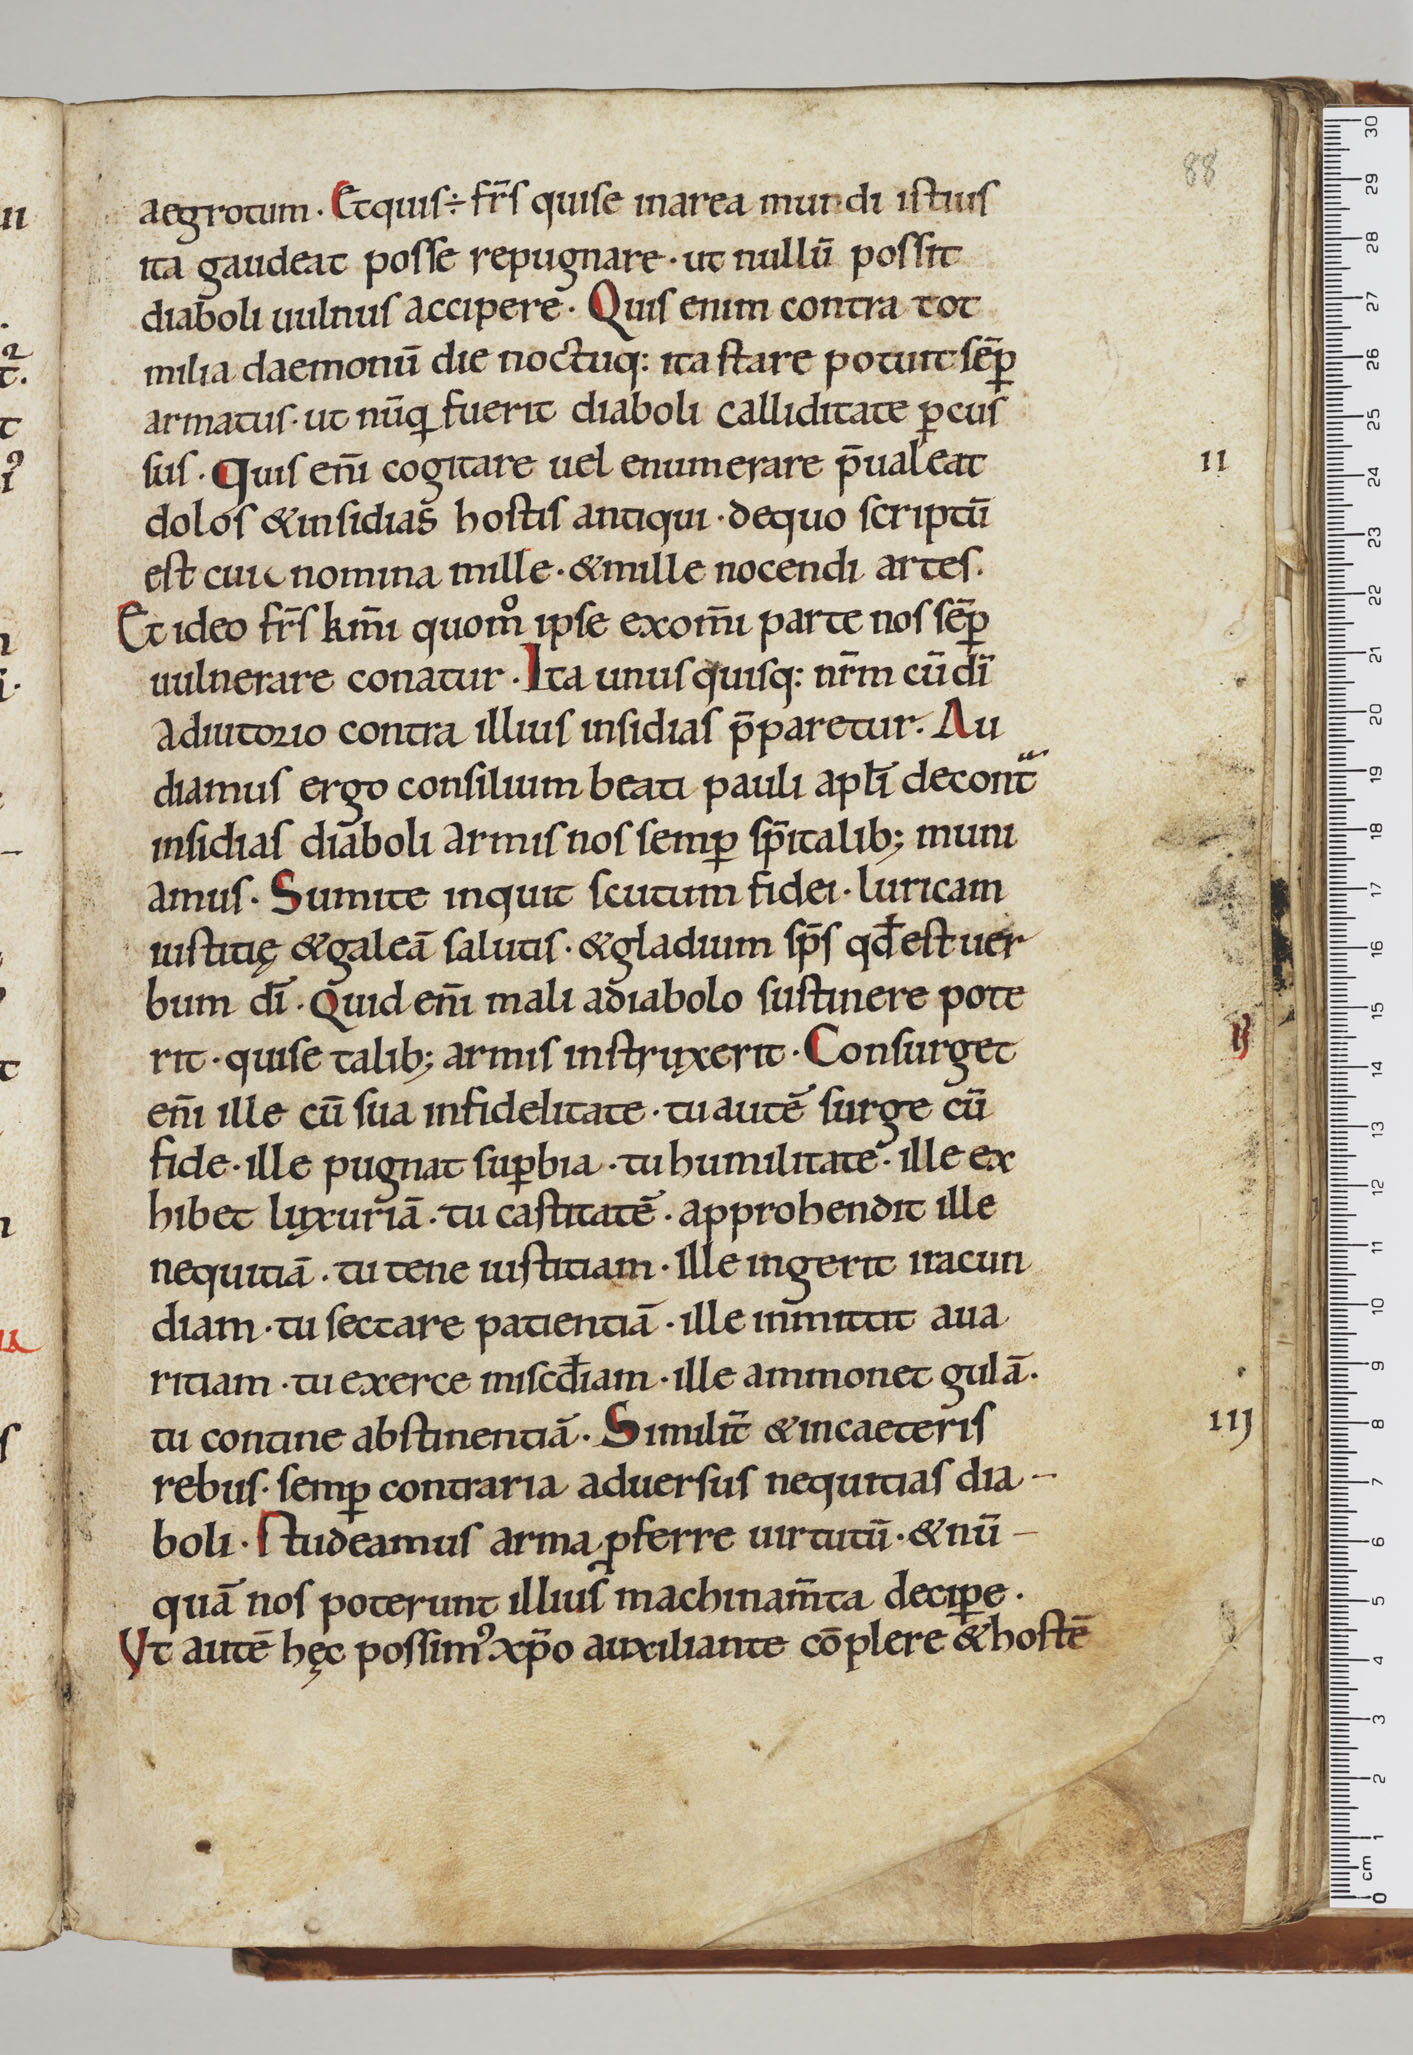 88
aegrotum · Et quis ÷ fr̄s qui se in area mundi istius
ita gaudeat posse repugnare · ut nullū possit
diaboli uulnus accipere · Quis enim contra tot
milia daemonū die noctuq: ita stare potuit sēp̱
armatus · ut nūq̱ fuerit diaboli calliditate p̱cus
sus · Quis en̄i cogitare uel enumerare p̄ualeat
II
dolos & insidias hostis antiqui · de quo scriptū
est cui nomina mille · & mille nocendi artes.
Et ideo fr̄s km̄i quom̊ ipse ex om̄i parte nos sēp̱
uulnerare conatur · Ita unusquisq: nr̄m cū dī
adiutorio contra illius insidias p̄paretur. Au
diamus ergo consilium beati pauli apl̄i de cont̄
insidias diaboli armis nos semp̱ sp̄italib; muni
amus · Sumite inquit scutum fidei · luricam
iustitię & galeā salutis · & gladium sp̄s qđ est uer
bum dī · Quid en̄i mali a diabolo sustinere pote
rit · qui se talib; armis instruxerit · Consurget
en̄i ille cū sua infidelitate · tu autē surge cū
fide · ille pugnat sup̱bia · tu humilitate · ille ex
hibet luxuriā · tu castitatē · approhendit ille
nequitiā · tu tene iustitiam · ille ingerit iracun
diam · tu sectare patientiā · ille inmittit aua
ritiam · tu exerce miscđiam · ille ammonet gulā ·
tu contine abstinentiā · Similit̄ & in caeteris
III
rebus · semp̱ contraria aduersus nequitias dia –
boli · studeamus arma p̱ferre uirtutū · & nū –
quā nos poterunt illius machinam̄ta decip̱e ·
Vt autē hęc possim᾽ xp̄o auxiliante cōplere & hostē
0 cm 1 2 3 4 5 6 7 8 9 10 11 12 13 14 15 16 17 18 19 20 21 22 23 24 25 26 27 28 29 30